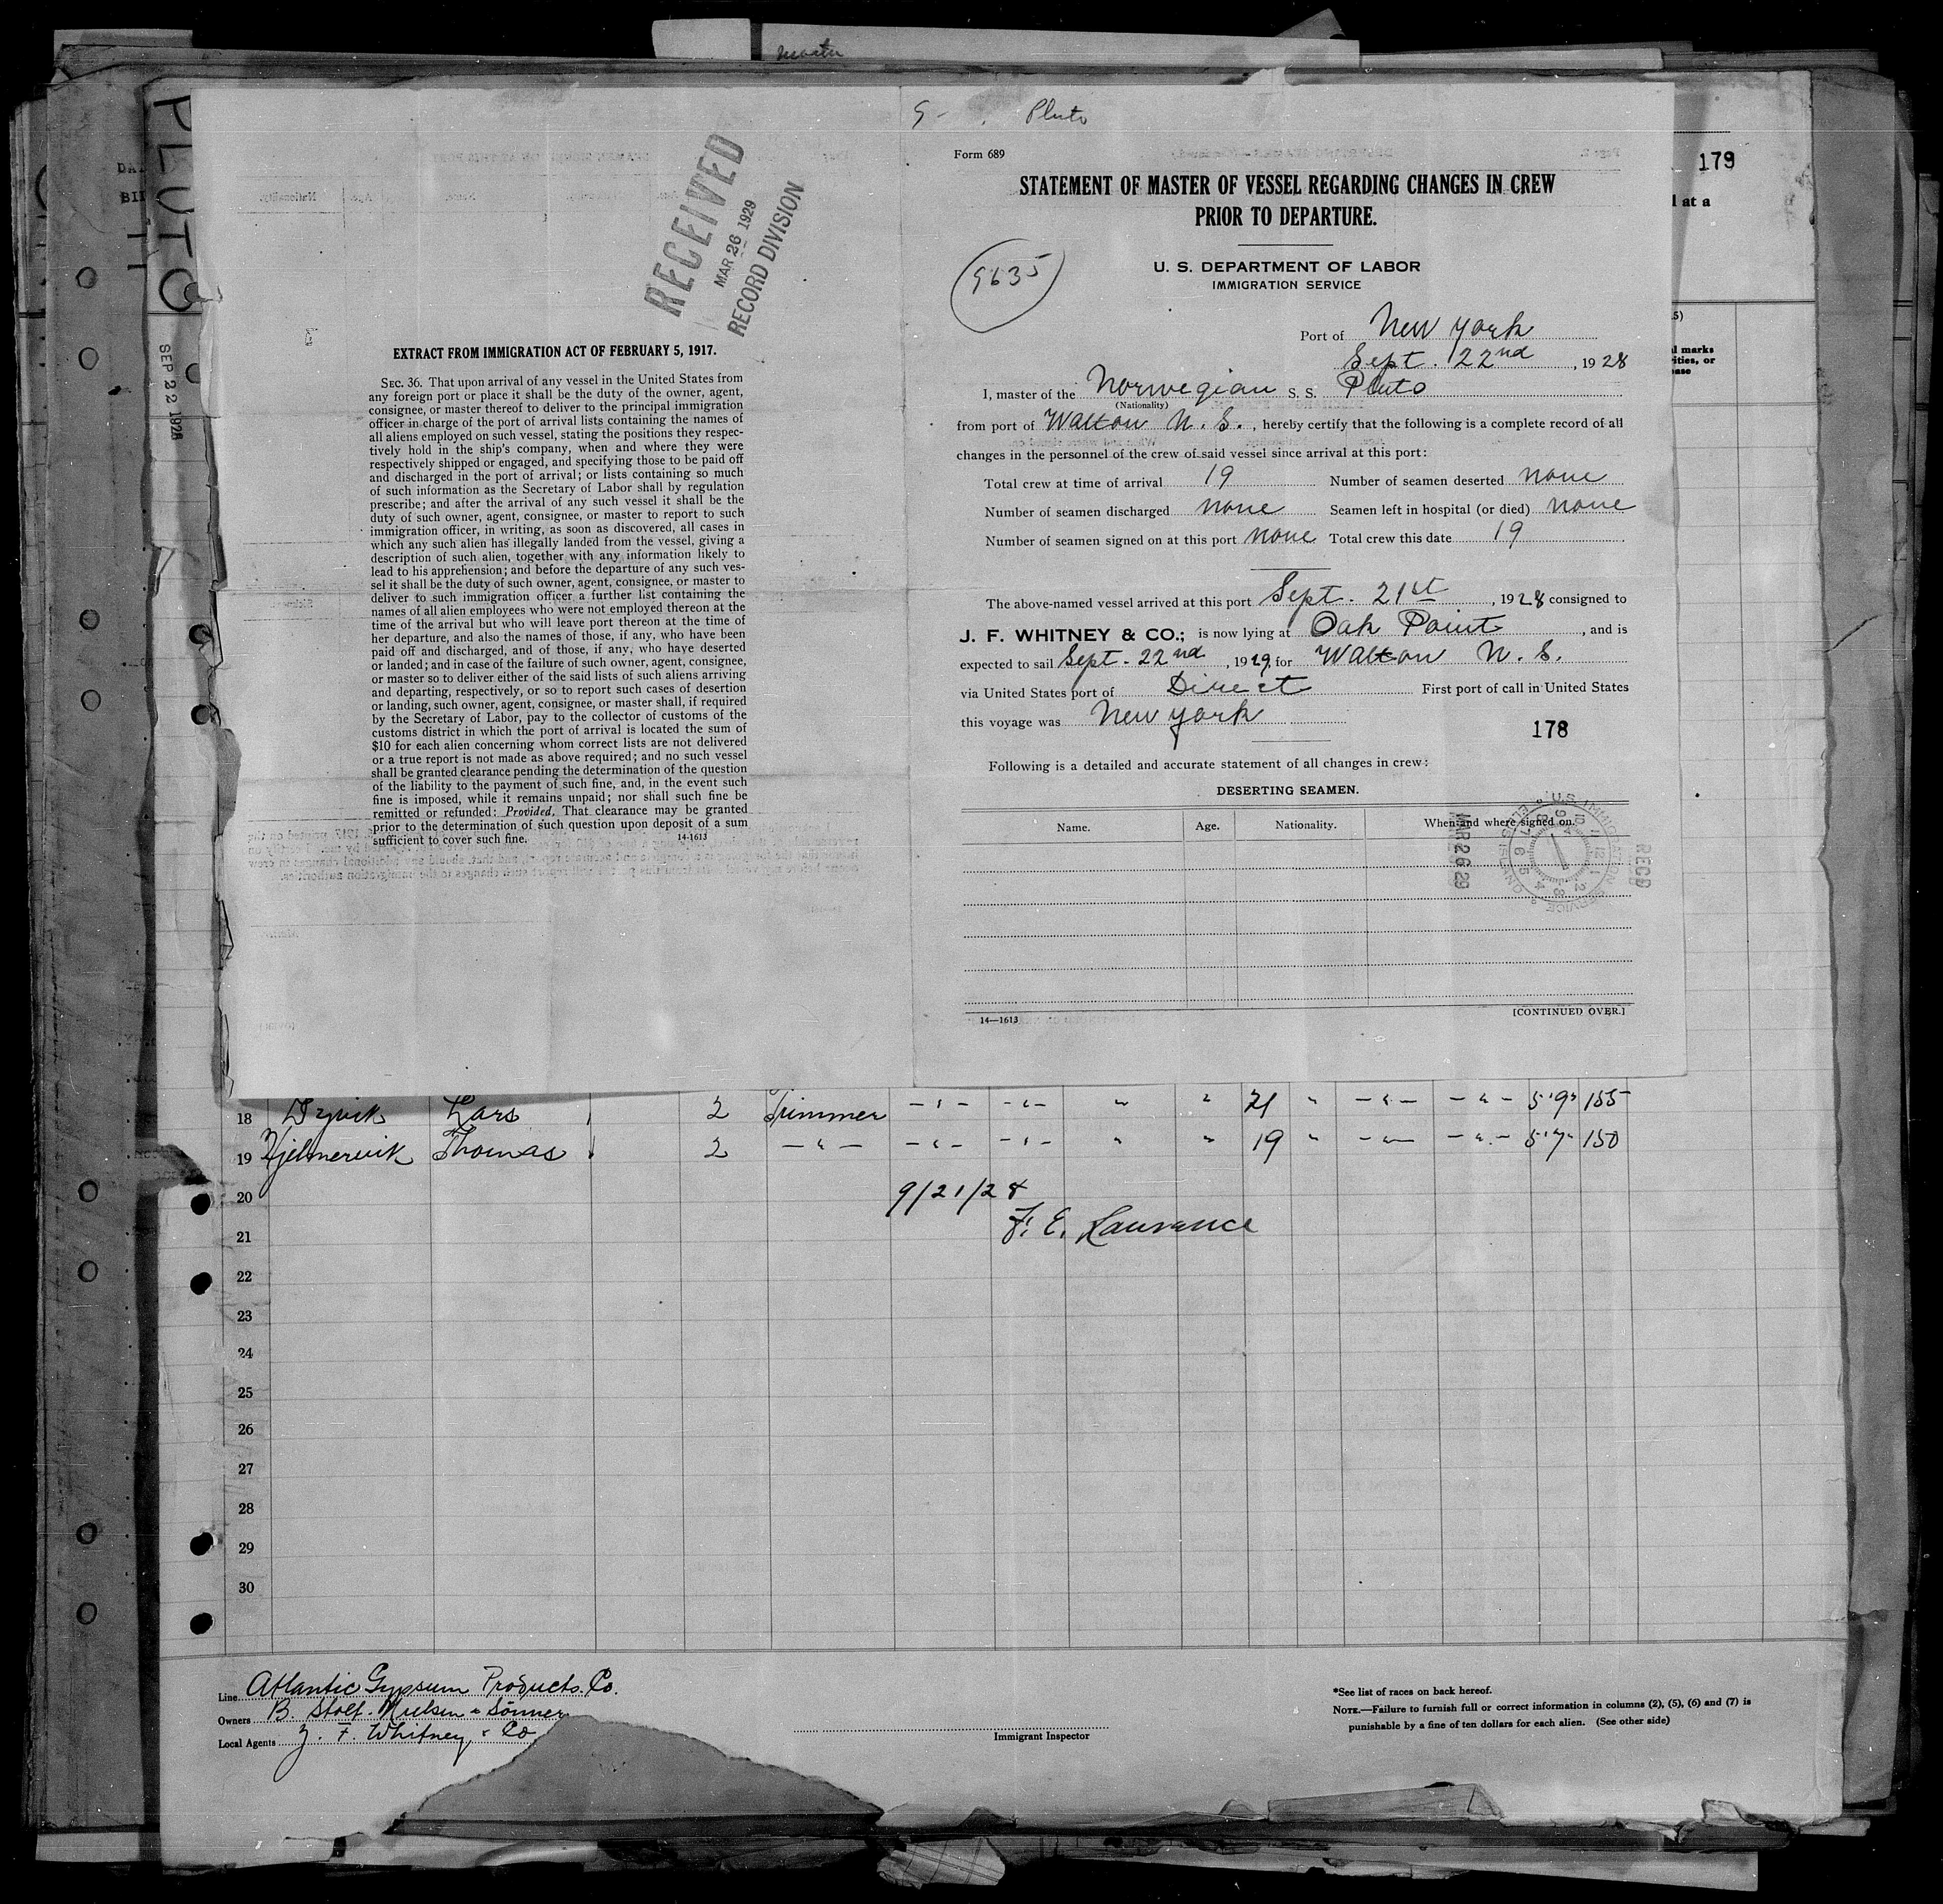 Master
PLUTO
SEP 22 1928
RECEIVED
MAR 26 1929
RECORD DIVISION
EXTRACT FROM IMMIGRATION ACT OF FEBRUARY 5, 1917.
SEC. 36. That upon arrival of any vessel in the United States from
any foreign port or place it shall be the duty of the owner, agent,
consignee, or master thereof to deliver to the principal immigration
officer in charge of the port of arrival lists containing the names of
all aliens employed on such vessel, stating the positions they respec-
tively hold in the ship's company, when and where they were
respectively shipped or engaged, and specifying those to be paid off
and discharged in the port of arrival; or lists containing so much
of such information as the Secretary of Labor shall by regulation
prescribe; and after the arrival of any such vessel it shall be the
duty of such owner, agent, consignee, or master to report to such
immigration officer, in writing, as soon as discovered, all cases in
which any such alien has illegally landed from the vessel, giving a
description of such alien, together with any information likely to
lead to his apprehension; and before the departure of any such ves-
sel it shall be the duty of such owner, agent, consignee, or master to
deliver to such immigration officer a further list containing the
names of all alien employees who were not employed thereon at the
time of the arrival but who will leave port thereon at the time of
her departure, and also the names of those, if any, who have been
paid off and discharged, and of those, if any, who have deserted
or landed; and in case of the failure of such owner, agent, consignee,
or master so to deliver either of the said lists of such aliens arriving
and departing, respectively, or so to report such cases of desertion
or landing, such owner, agent, consignee, or master shall, if required
by the Secretary of Labor, pay to the collector of customs of the
customs district in which the port of arrival is located the sum of
$10 for each alien concerning whom correct lists are not delivered
or a true report is not made as above required; and no such vessel
shall be granted clearance pending the determination of the question
of the liability to the payment of such fine, and, in the event such
fine is imposed, while it remains unpaid; nor shall such fine be
remitted or refunded: Provided, That clearance may be granted
prior to the determination of such question upon deposit of a sum
sufficient to cover such fine. 14-1613
Pluto
Form 689
STATEMENT OF MASTER OF VESSEL REGARDING CHANGES IN CREW
PRIOR TO DEPARTURE.
9635
U. S. DEPARTMENT OF LABOR
IMMIGRATION SERVICE
Port of New York
Sept. 22nd, 1928
I, master of the Norwegian S. S. Pluto
(Nationality)
from port of Walton N. S., hereby certify that the following is a complete record of all
changes in the personnel of the crew of said vessel since arrival at this port:
Total crew at time of arrival 19 Number of seamen deserted none
Number of seamen discharged none Seamen left in hospital (or died) none
Number of seamen signed on at this port none Total crew this date 19
The above-named vessel arrived at this port Sept. 21st, 1928 consigned to
J. F. WHITNEY & CO.; is now lying at Oak Point, and is
expected to sail Sept. 22nd, 1929, for Walton N. S.
via United States port of Direct First port of call in United States
this voyage was New York
178
Following is a detailed and accurate statement of all changes in crew:
DESERTING SEAMEN.
Name. Age. Nationality. When and where signed on.
MAR 26 29
U.S. IMMIGRATION SERVICE ELLIS ISLAND
RECD
14—1613 [CONTINUED OVER.]
179
l at a
l marks
ities, or
ase
18 Lars 2 Trimmer 21 5'9" 155
19 Hjelmervik Thomas 2 19 5'7" 150
20 9/21/28
21 F. E. Laurance
22
23
24
25
26
27
28
29
30
Line Atlantic Gypsum Products. Co.
Owners B. Stolt-Nielsen & Sönner
Local Agents J. F. Whitney & Co
Immigrant Inspector
*See list of races on back hereof.
NOTE.—Failure to furnish full or correct information in columns (2), (5), (6) and (7) is
punishable by a fine of ten dollars for each alien. (See other side)